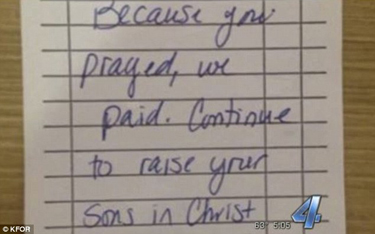 Because you
prayed, we
paid. Continue
to raise your
sons in Christ
63° 5:05 4
© KFOR